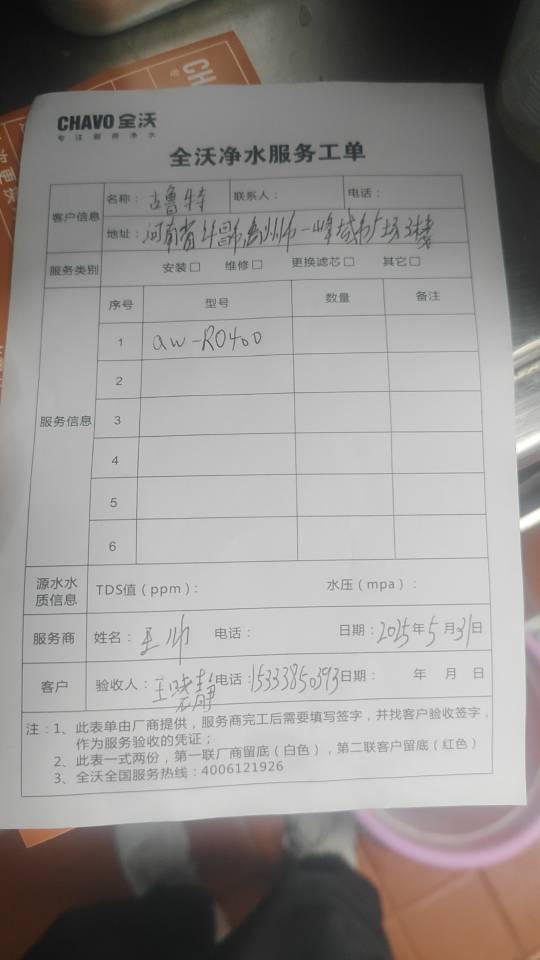 CHAVO 全沃
专注厨房净水
全沃净水服务工单
客户信息
名称：古鲁特
联系人：
电话：
地址：河南省许昌市禹州市一峰城市广场3楼
服务类别
安装□ 维修□ 更换滤芯□ 其它□
服务信息
序号 型号 数量 备注
1 aw-RO400
2
3
4
5
6
源水水质信息
TDS值（ppm）：
水压（mpa）：
服务商 姓名：王帅 电话： 日期：2025年5月31日
客户 验收人：王晓静 电话：15333850393 日期： 年 月 日
注：1、此表单由厂商提供，服务商完工后需要填写签字，并找客户验收签字，
作为服务验收的凭证；
2、此表一式两份，第一联厂商留底（白色），第二联客户留底（红色）
3、全沃全国服务热线：4006121926
CH